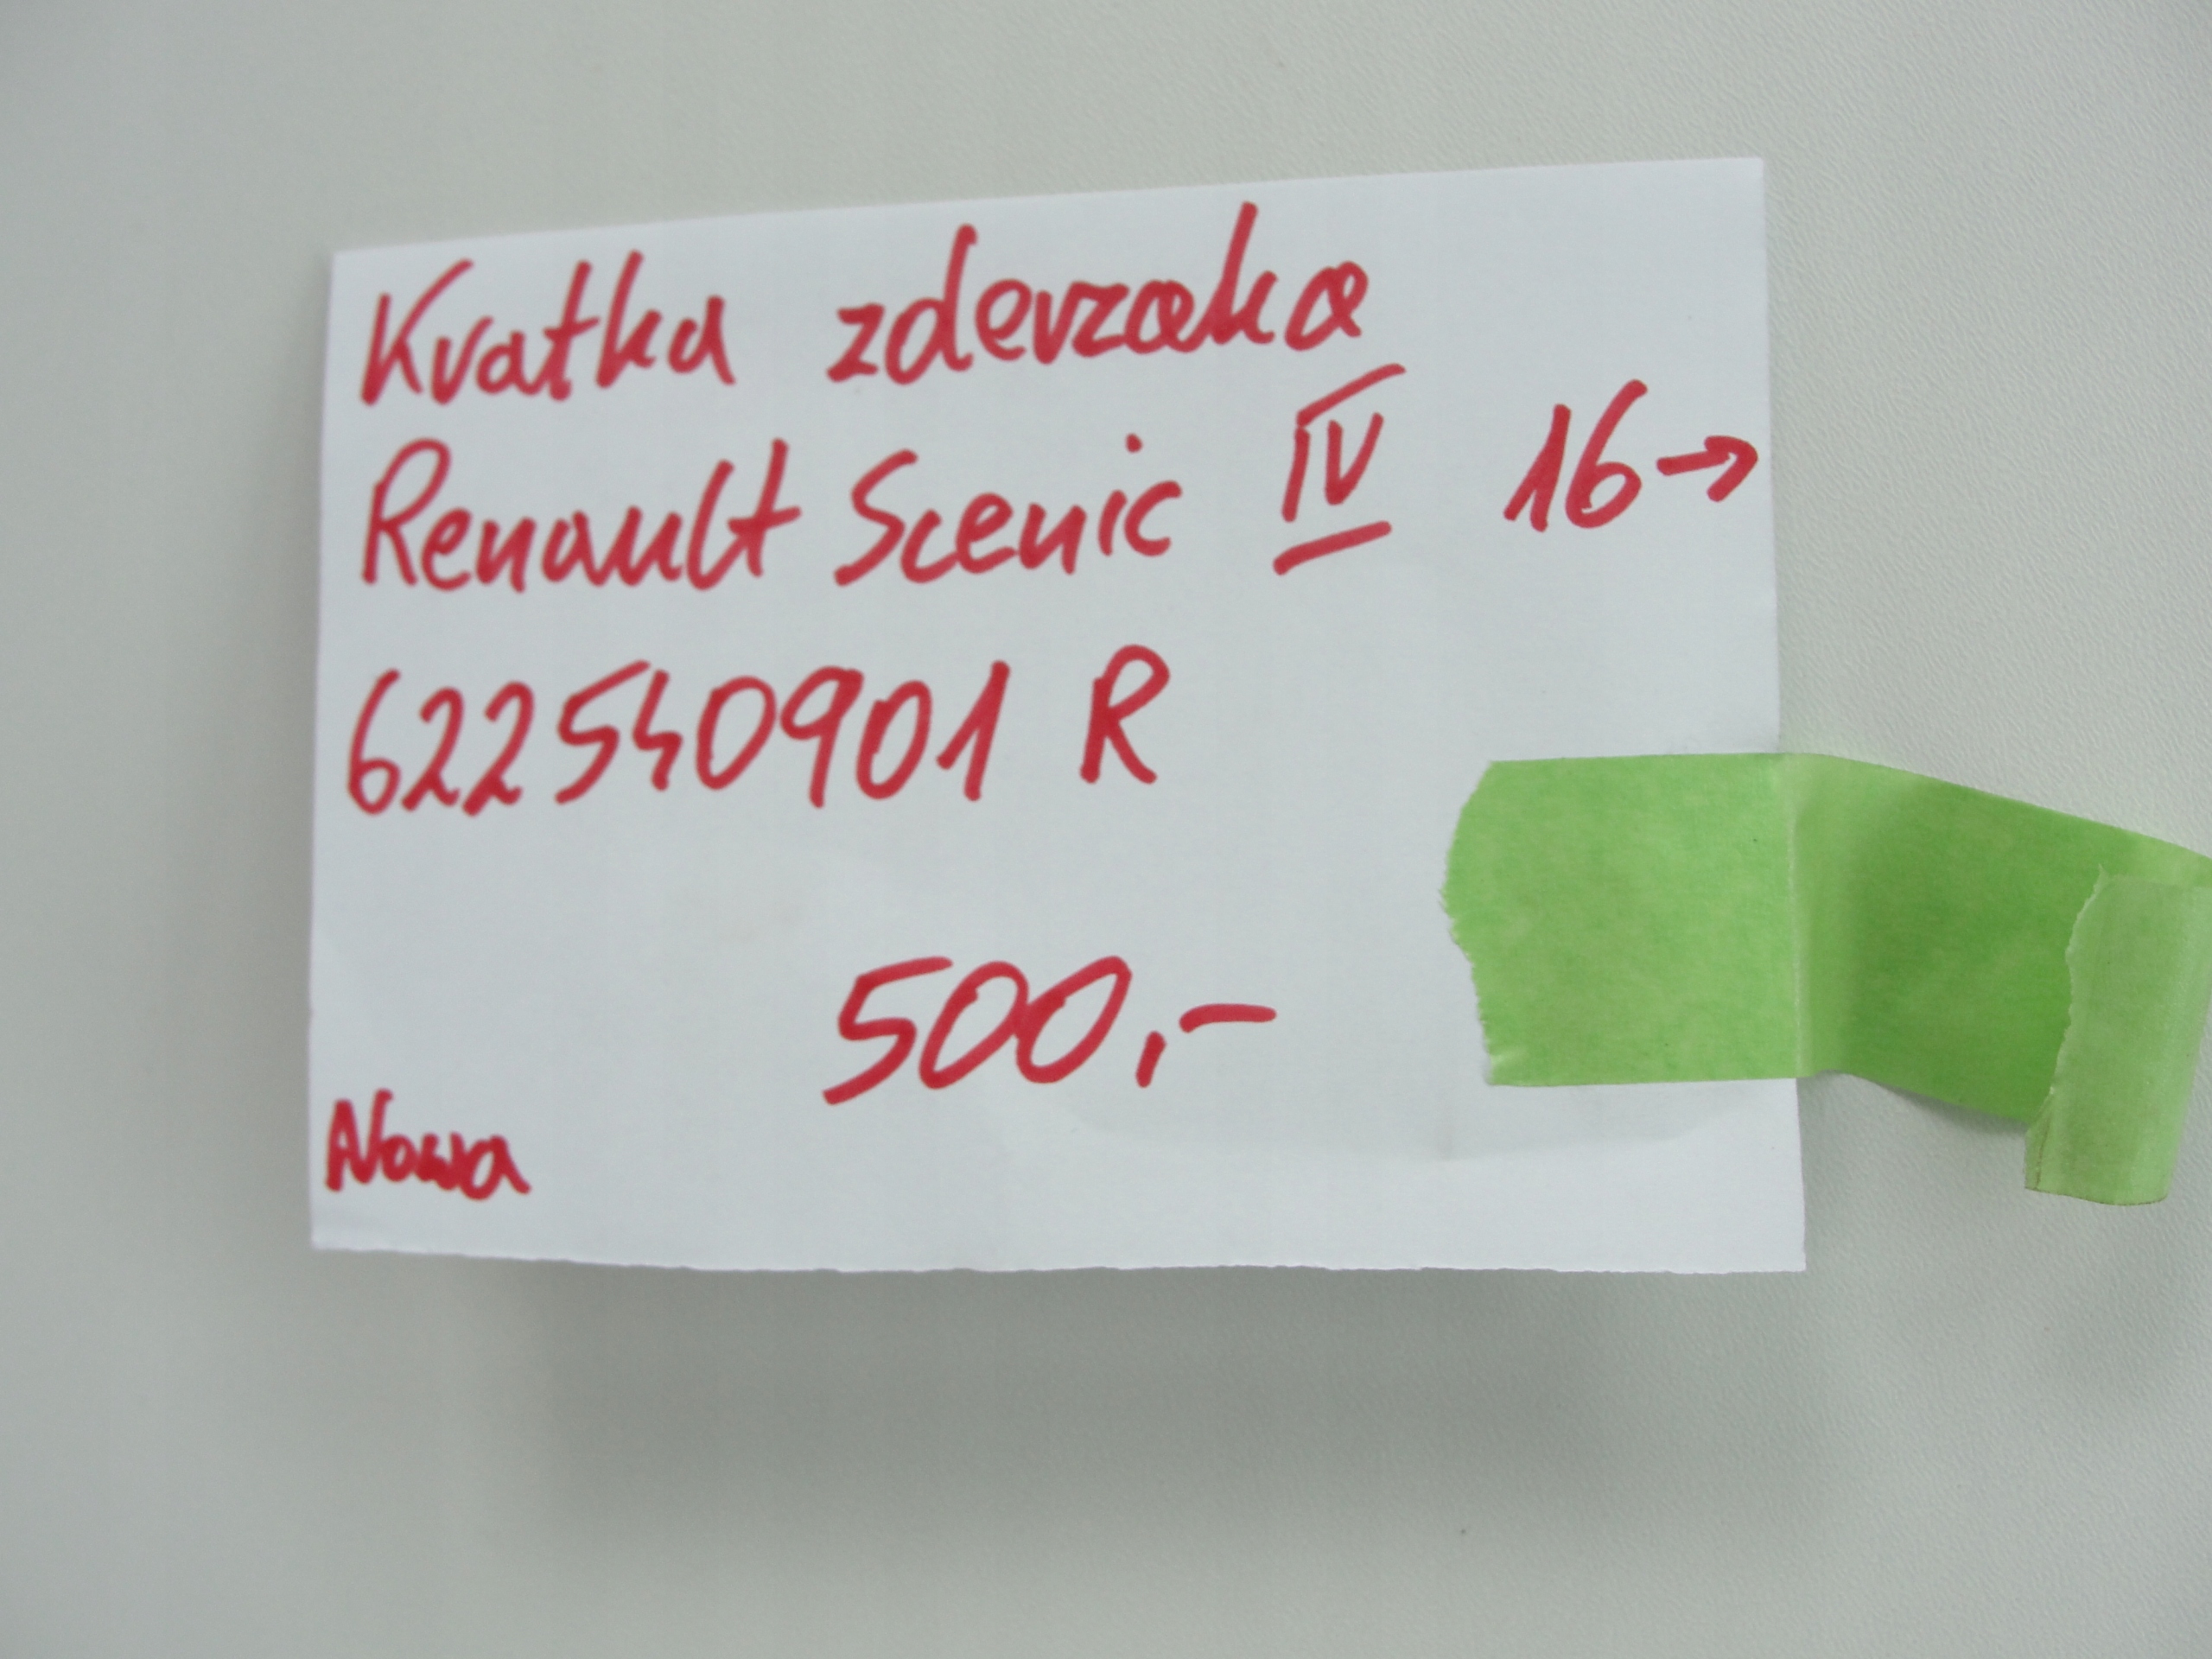 Kratka zderzaka
Renault Scenic IV 16→
622540901 R
500,-
Nowa